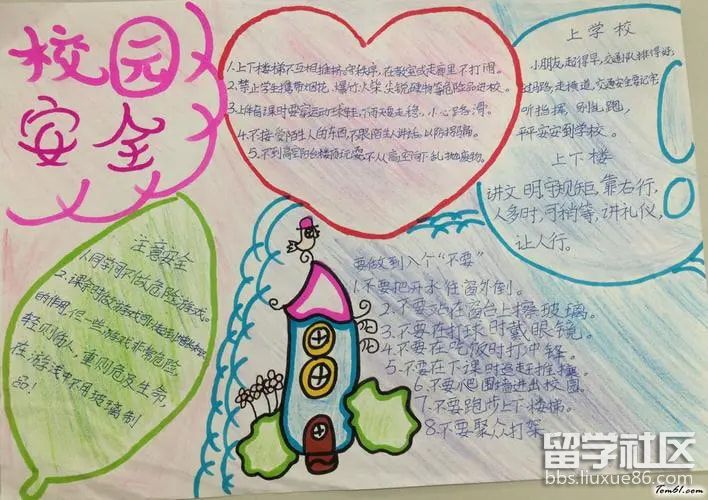 校园
安全
1.上下楼梯不互相推挤,守秩序,在教室或走廊里不打闹。
2.禁止学生携带烟花、爆竹、火柴、尖锐硬物等危险品进校。
3.上体育课时要穿运动球鞋,下雨天要走稳,小心路滑。
4.不接受陌生人的东西,不跟陌生人讲话,以防拐骗。
5.不到高空阳台楼顶玩耍,不从高空向下乱抛废物。
上学校
小朋友,起得早,交通队排得好,
过马路,走横道,交通安全登记牢
听指挥,别乱跑,
平平安安到学校。
上下楼
讲文明,守规矩,靠右行,
人多时,可稍等,讲礼仪,
让人行。
注意安全
1.同学间不做危险游戏。
2.课余时做游戏可
的作用,但一些游戏非常危险
轻则伤人,重则危及生命,
在游戏中不用玻璃制
品!
要做到八个“不要”
1.不要把开水往窗外倒。
2.不要站在窗台上擦玻璃。
3.不要在打球时戴眼镜。
4.不要在吃饭时打冲锋。
5.不要在下课时追赶推搡。
6.不要爬围墙进出校园。
7.不要跑步上下楼梯。
8.不要聚众打架
留学社区
bbs.liuxue86.com
Tom61.com